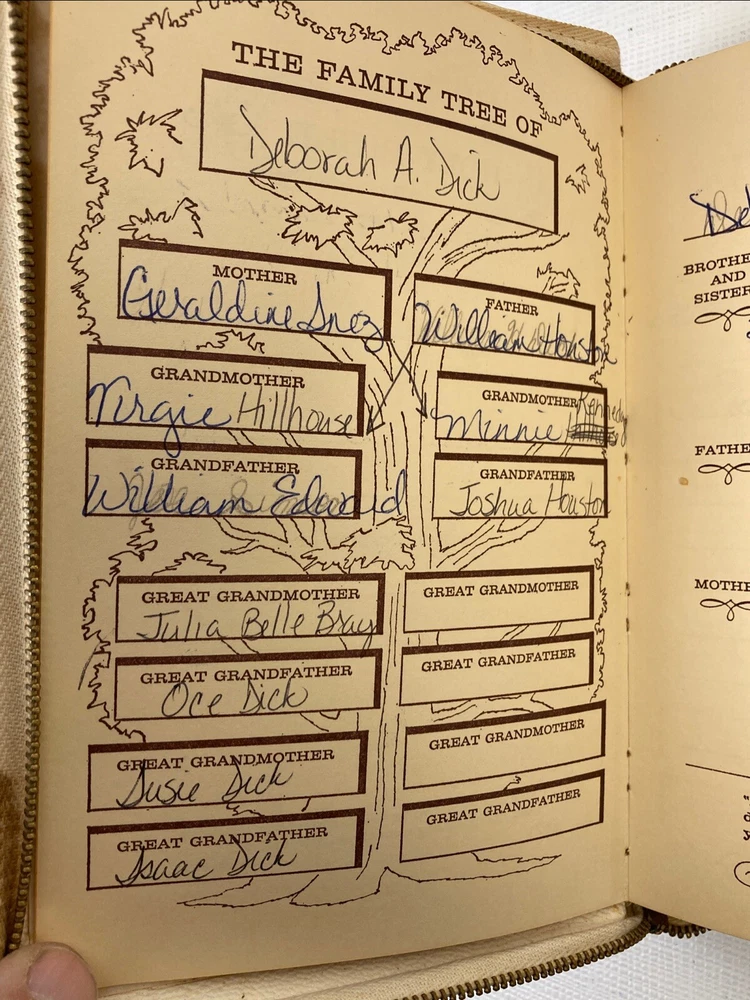 THE FAMILY TREE OF
Deborah A. Dick
MOTHER
Geraldine Inez
FATHER
William Houston
GRANDMOTHER
Virgie Hillhouse
GRANDMOTHER
Minnie Kennedy
GRANDFATHER
William Edward
GRANDFATHER
Joshua Houston
GREAT GRANDMOTHER
Julia Belle Bray
GREAT GRANDMOTHER
GREAT GRANDFATHER
Oce Dick
GREAT GRANDFATHER
GREAT GRANDMOTHER
Susie Dick
GREAT GRANDMOTHER
GREAT GRANDFATHER
Isaac Dick
GREAT GRANDFATHER
De
BROTHE
AND
SISTER
FATHE
MOTHE